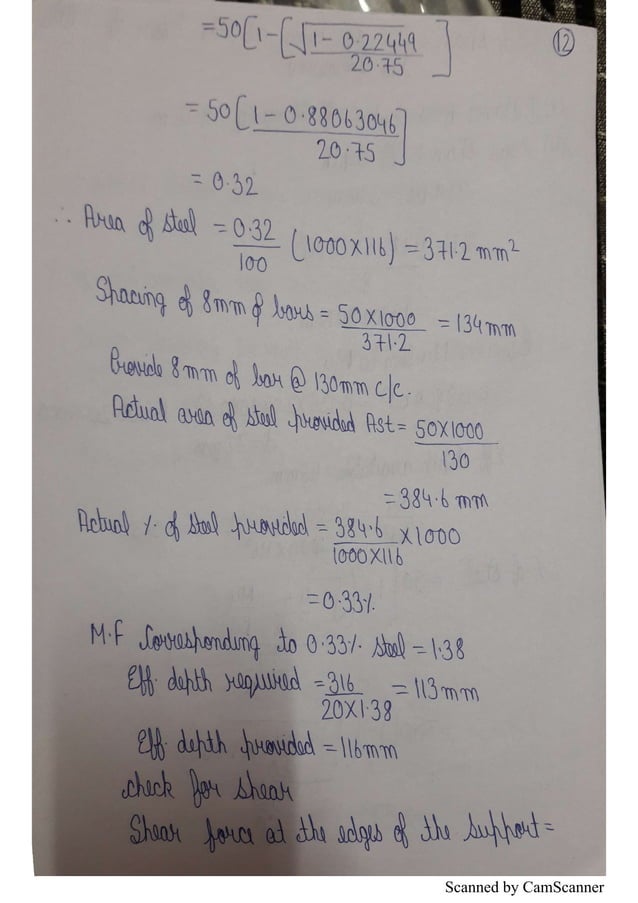 =50[1-[√1-0.22449
20.75]
12
=50[1-0.88063046
20.75]
= 0.32
∴ Area of steel = 0.32
100
(1000x116) = 371.2 mm²
Spacing of 8mm ϕ bars = 50x1000
371.2
= 134mm
Provide 8mm of bar @ 130mm c/c.
Actual area of steel provided Ast = 50x1000
130
= 384.6 mm
Actual %. of steel provided = 384.6
1000x116
x1000
= 0.33%
M.F Corresponding to 0.33%. steel = 1.38
Eff. depth required = 316
20x1.38
= 113mm
Eff. depth provided = 116mm
check for shear
Shear force at the edges of the support =
Scanned by CamScanner